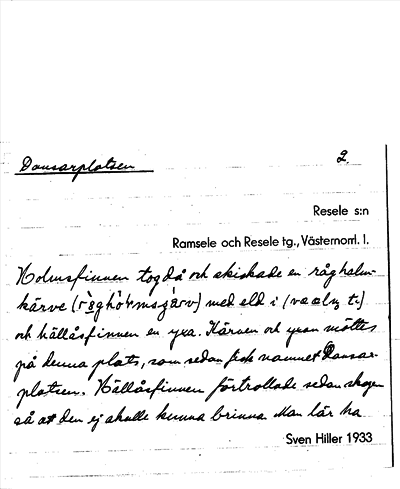 Dansarplatsen
2.
Resele s:n
Ramsele och Resele tg., Västernorrl. l.
Holmsfinnen tog då och skickade en råghalm-
kärve med eld i
och hällåsfinnen en yxa. Kärven och yxan möttes
på denna plats, som sedan fick namnet Dansar-
platsen. Hällåsfinnen förtrollade sedan skogen
så att den ej skulle kunna brinna. Man lär ha
Sven Hiller 1933